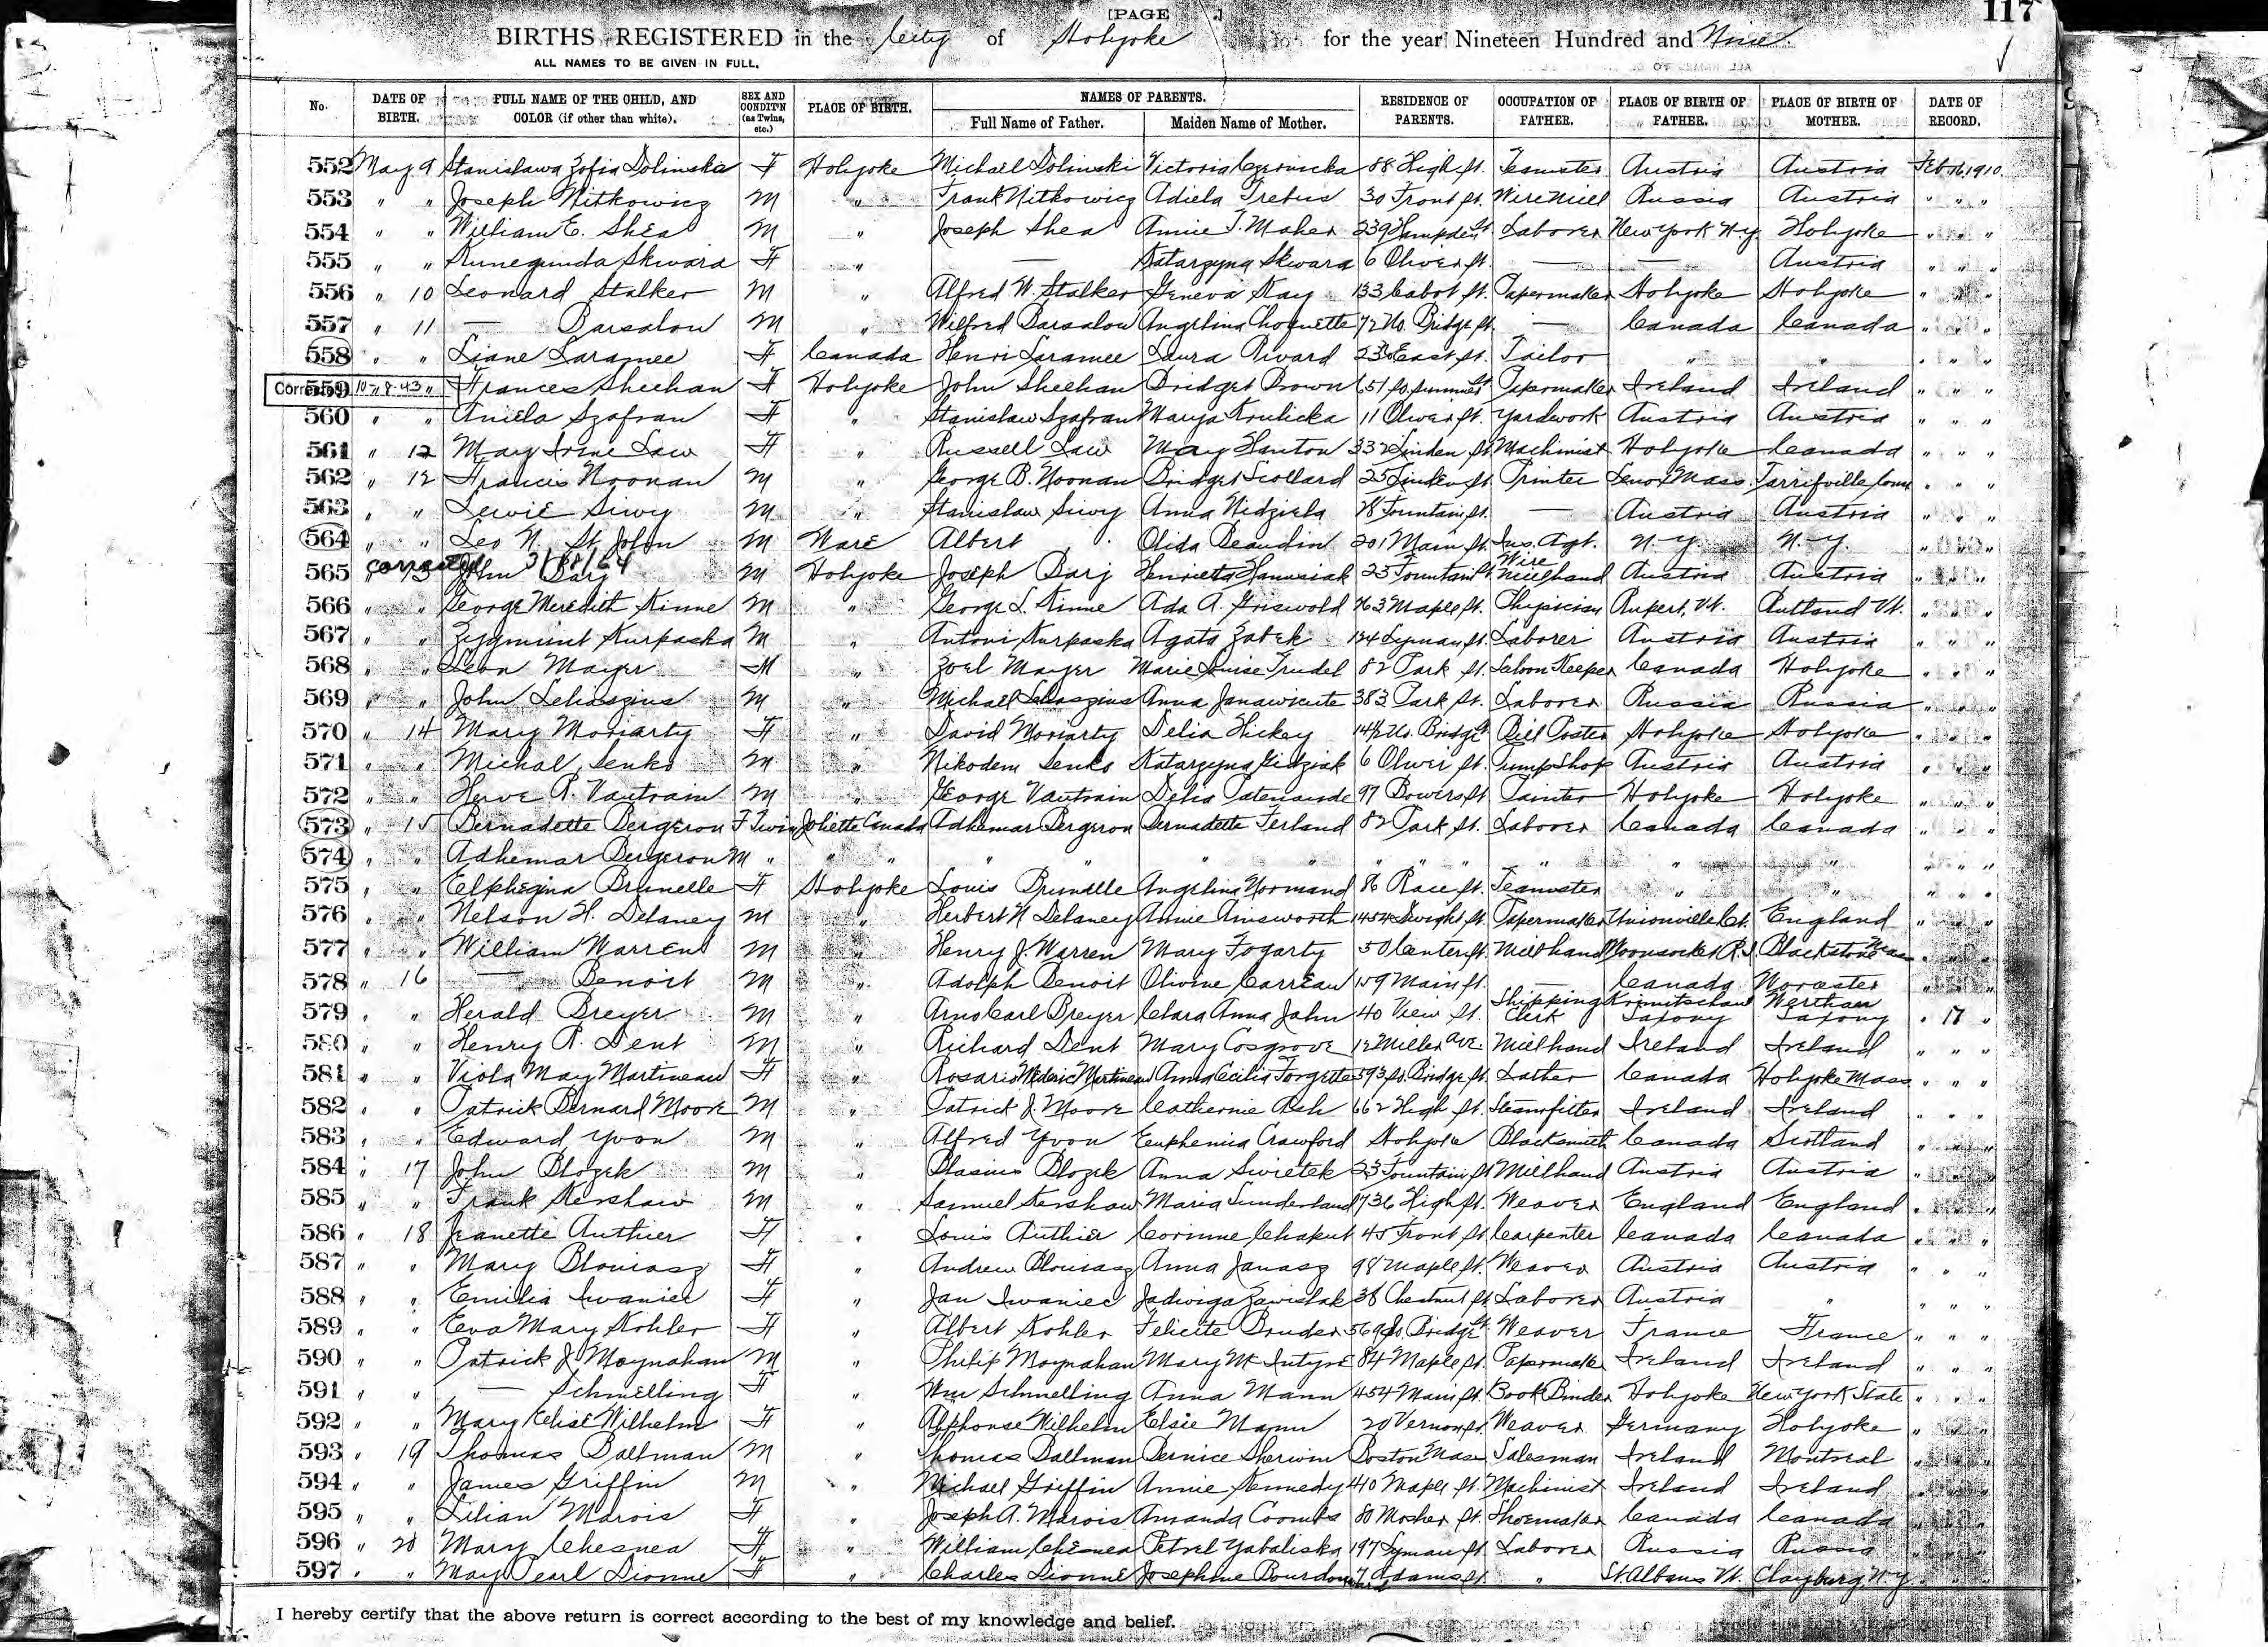 [PAGE ] 117
BIRTHS REGISTERED in the City of Holyoke for the year Nineteen Hundred and Nine.
ALL NAMES TO BE GIVEN IN FULL.
No. DATE OF BIRTH. FULL NAME OF THE CHILD, AND COLOR (if other than white). SEX AND CONDIT'N (as Twins, etc.) PLACE OF BIRTH. NAMES OF PARENTS. Full Name of Father. Maiden Name of Mother. RESIDENCE OF PARENTS. OCCUPATION OF FATHER. PLACE OF BIRTH OF FATHER. PLACE OF BIRTH OF MOTHER. DATE OF RECORD.
552 May 9 Stanislawa Zofia Dolinska F Holyoke Michael Dolinski Victoria Czernicka 88 High St. Teamster Austria Austria Feb 16, 1910.
553 " " Joseph Nitkowicz M " Frank Nitkowicz Adiela Tretus 30 Front St. Wire Mill Russia Austria " " "
554 " " William E. Shea M " Joseph Shea Annie T. Maher 239 Hampden St. Laborer New York N.Y. Holyoke " " "
555 " " Kunegunda Skwara F " — Katarzyna Skwara 6 Oliver St. — — Austria " " "
556 " 10 Leonard Stalker M " Alfred W. Stalker Geneva Kay 133 Cabot St. Papermaker Holyoke Holyoke " " "
557 " 11 — Barsalou M " Wilfred Barsalou Angelina Choquette 72 No. Bridge St. — Canada Canada " " "
558 " " Liane Laramee F Canada Henri Laramee Laura Rivard 236 East St. Tailor " " " " "
Corrected 559 10-18-43 " Frances Sheehan F Holyoke John Sheehan Bridget Brown 651 So. Summer St. Papermaker Ireland Ireland " " "
560 " " Aniela Szafran F " Stanislaw Szafran Marya Krulicka 11 Oliver St. Yardwork Austria Austria " " "
561 " 12 Mary Irene Law F " Russell Law May Hanton 332 Linden St. Machinist Holyoke Canada " " "
562 " 12 Francis Noonan M " George B. Noonan Bridget Scollard 25 Linden St. Printer Lenox Mass. Tarrifville Conn " " "
563 " " Lewie Siwy M " Stanislaw Siwy Anna Nidziela 78 Fountain St. — Austria Austria " " "
564 " " Leo N. St. John M Ware Albert Olida Beaudin 201 Main St. Ins. Agt. N.Y. N.Y. " " "
corrected 3/88/64
565 " 13 John Barj M Holyoke Joseph Barj Henrieta Hanusiak 25 Fountain St. Wire Millhand Austria Austria " " "
566 " " George Meredith Kinne M " George L. Kinne Ada A. Griswold 763 Maple St. Physician Rupert, Vt. Rutland Vt. " " "
567 " " Zygmunt Kurpaska M " Antoni Kurpaska Agata Zabek 124 Lyman St. Laborer Austria Austria " " "
568 " " Leon Mayer M " Zoel Mayer Marie Louise Trudel 82 Park St. Saloon Keeper Canada Holyoke " " "
569 " " John Lehaszius M " Michael Lehaszius Anna Janawicute 383 Park St. Laborer Russia Russia " " "
570 " 14 Mary Moriarty F " David Moriarty Delia Hickey 144 No. Bridge St. Bill Poster Holyoke Holyoke " " "
571 " " Michal Senko M " Nikodem Senko Katarzyna Gidziak 6 Oliver St. Pump Shop Austria Austria " " "
572 " " Herve A. Vautrain M " George Vautrain Delia Patenaude 97 Bowers St. Painter Holyoke Holyoke " " "
573 " 15 Bernadette Bergeron F Twin Joliette Canada Adhemar Bergeron Bernadette Ferland 82 Park St. Laborer Canada Canada " " "
574 " " Adhemar Bergeron M " " " " " " " " " " " " " "
575 " " Elphegina Brunelle F Holyoke Louis Brunelle Angelina Normand 86 Race St. Teamster " " " " "
576 " " Nelson H. Delaney M " Herbert N Delaney Annie Ainsworth 1454 Dwight St. Papermaker Unionville Ct. England " " "
577 " " William Warren M " Henry J. Warren Mary Fogarty 50 Center St. Millhand Woonsocket R.I. Blackstone Mass " " "
578 " 16 — Benoit M " Adolph Benoit Olivine Carreau 159 Main St. — Canada Worcester " " "
579 " " Herald Breyer M " Arno Carl Breyer Clara Anna John 40 View St. Shipping Clerk Krimitschau Saxony Werthau Saxony " 17 "
580 " " Henry R. Dent M " Richard Dent Mary Cosgrove 12 Miller Ave. Millhand Ireland Ireland " " "
581 " " Viola May Martineau F " Rosario Mederic Martineau Anna Cecilia Forgette 593 So. Bridge St. Lather Canada Holyoke Mass " " "
582 " " Patrick Bernard Moore M " Patrick J. Moore Catherine Ash 662 High St. Steamfitter Ireland Ireland " " "
583 " " Edward Yvon M " Alfred Yvon Euphemia Crawford Holyoke Blacksmith Canada Scotland " " "
584 " 17 John Blozek M " Blasius Blozek Anna Swietek 23 Fountain St. Millhand Austria Austria " " "
585 " " Frank Kershaw M " Samuel Kershaw Maria Sunderland 736 High St. Weaver England England " " "
586 " 18 Jeanette Authier F " Louis Authier Corinne Chaput 45 Front St. Carpenter Canada Canada " " "
587 " " Mary Blouiasz F " Andrew Blouiasz Anna Janasz 98 Maple St. Weaver Austria Austria " " "
588 " " Emilia Iwaniec F " Jan Iwaniec Jadwiga Zawislak 36 Chestnut St. Laborer Austria " " " "
589 " " Eva Mary Kohler F " Albert Kohler Felicite Bruder 569 So. Bridge St. Weaver France France " " "
590 " " Patrick J. Moynahan M " Philip Moynahan Mary McIntyre 84 Maple St. Papermaker Ireland Ireland " " "
591 " " — Schmelling F " Wm Schmelling Anna Mann 454 Main St. Book Binder Holyoke New York State " " "
592 " " Mary Elise Wilhelm F " Alphonse Wilhelm Elsie Mann 20 Vernon St. Weaver Germany Holyoke " " "
593 " 19 Thomas Ballman M " Thomas Ballman Bernice Sherwin Boston Mass Salesman Ireland Montreal " " "
594 " " James Griffin M " Michael Griffin Annie Kennedy 410 Maple St. Machinist Ireland Ireland " " "
595 " " Lilian Marois F " Joseph A. Marois Amanda Coombs 80 Mosher St. Shoemaker Canada Canada " " "
596 " 20 Mary Chesnea F " William Chesnea Petrel Yabaliska 197 Lyman St. Laborer Russia Russia " " "
597 " " May Pearl Dionne F " Charles Dionne Josephine Bourdon 7 Adams St. " St. Albans Vt. Clayburg N.Y. " " "
I hereby certify that the above return is correct according to the best of my knowledge and belief.